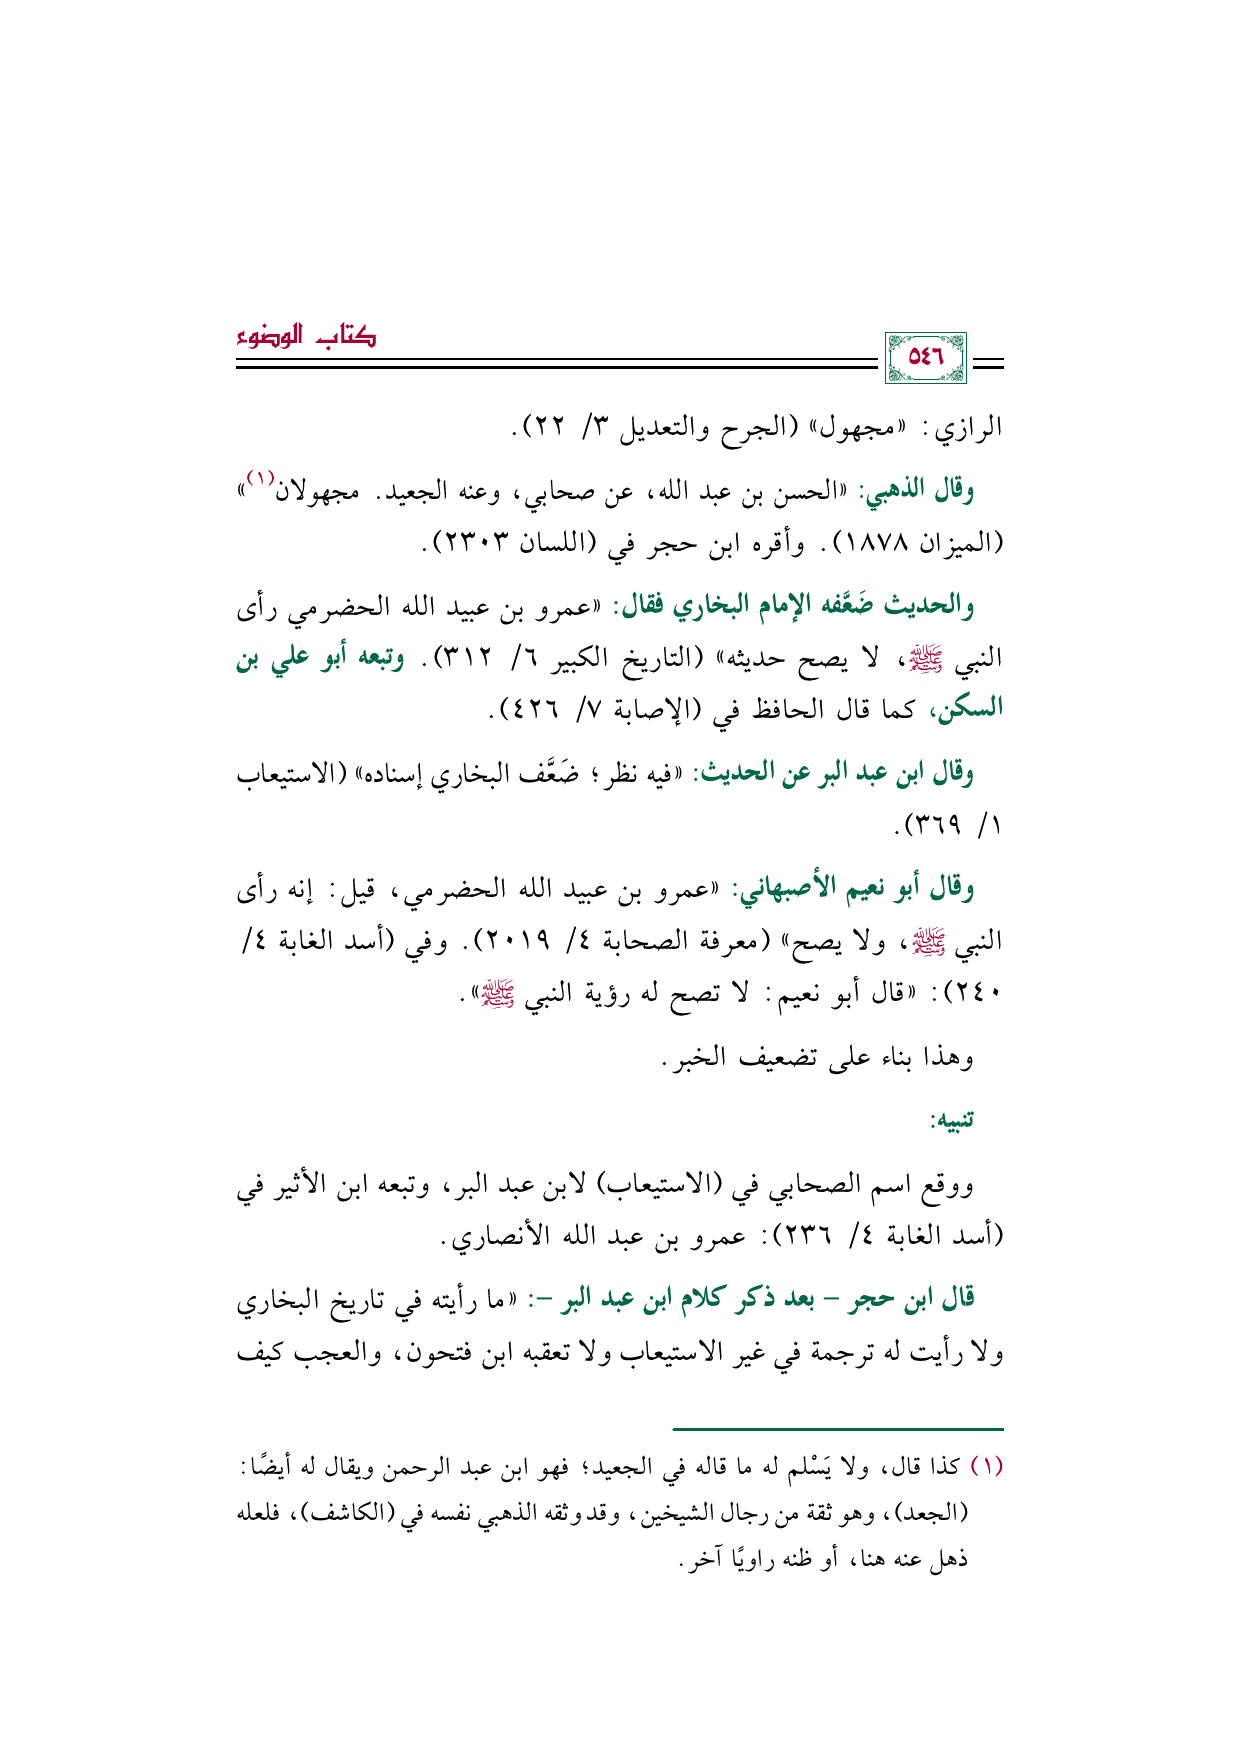 كتاب الوضوء
٥٤٦
الرازي: «مجهول» (الجرح والتعديل ٣/ ٢٢).
وقال الذهبي: «الحسن بن عبد الله، عن صحابي، وعنه الجعيد. مجهولان(١)»
(الميزان ١٨٧٨). وأقره ابن حجر في (اللسان ٢٣٠٣).
والحديث ضَعَّفه الإمام البخاري فقال: «عمرو بن عبيد الله الحضرمي رأى
النبي ﷺ، لا يصح حديثه» (التاريخ الكبير ٦/ ٣١٢). وتبعه أبو علي بن
السكن، كما قال الحافظ في (الإصابة ٧/ ٤٢٦).
وقال ابن عبد البر عن الحديث: «فيه نظر؛ ضَعَّف البخاري إسناده» (الاستيعاب
١/ ٣٦٩).
وقال أبو نعيم الأصبهاني: «عمرو بن عبيد الله الحضرمي، قيل: إنه رأى
النبي ﷺ، ولا يصح» (معرفة الصحابة ٤/ ٢٠١٩). وفي (أسد الغابة ٤/
٢٤٠): «قال أبو نعيم: لا تصح له رؤية النبي ﷺ».
وهذا بناء على تضعيف الخبر.
تنبيه:
ووقع اسم الصحابي في (الاستيعاب) لابن عبد البر، وتبعه ابن الأثير في
(أسد الغابة ٤/ ٢٣٦): عمرو بن عبد الله الأنصاري.
قال ابن حجر – بعد ذكر كلام ابن عبد البر –: «ما رأيته في تاريخ البخاري
ولا رأيت له ترجمة في غير الاستيعاب ولا تعقبه ابن فتحون، والعجب كيف
(١) كذا قال، ولا يَسْلم له ما قاله في الجعيد؛ فهو ابن عبد الرحمن ويقال له أيضًا:
(الجعد)، وهو ثقة من رجال الشيخين، وقد وثقه الذهبي نفسه في (الكاشف)، فلعله
ذهل عنه هنا، أو ظنه راويًا آخر.